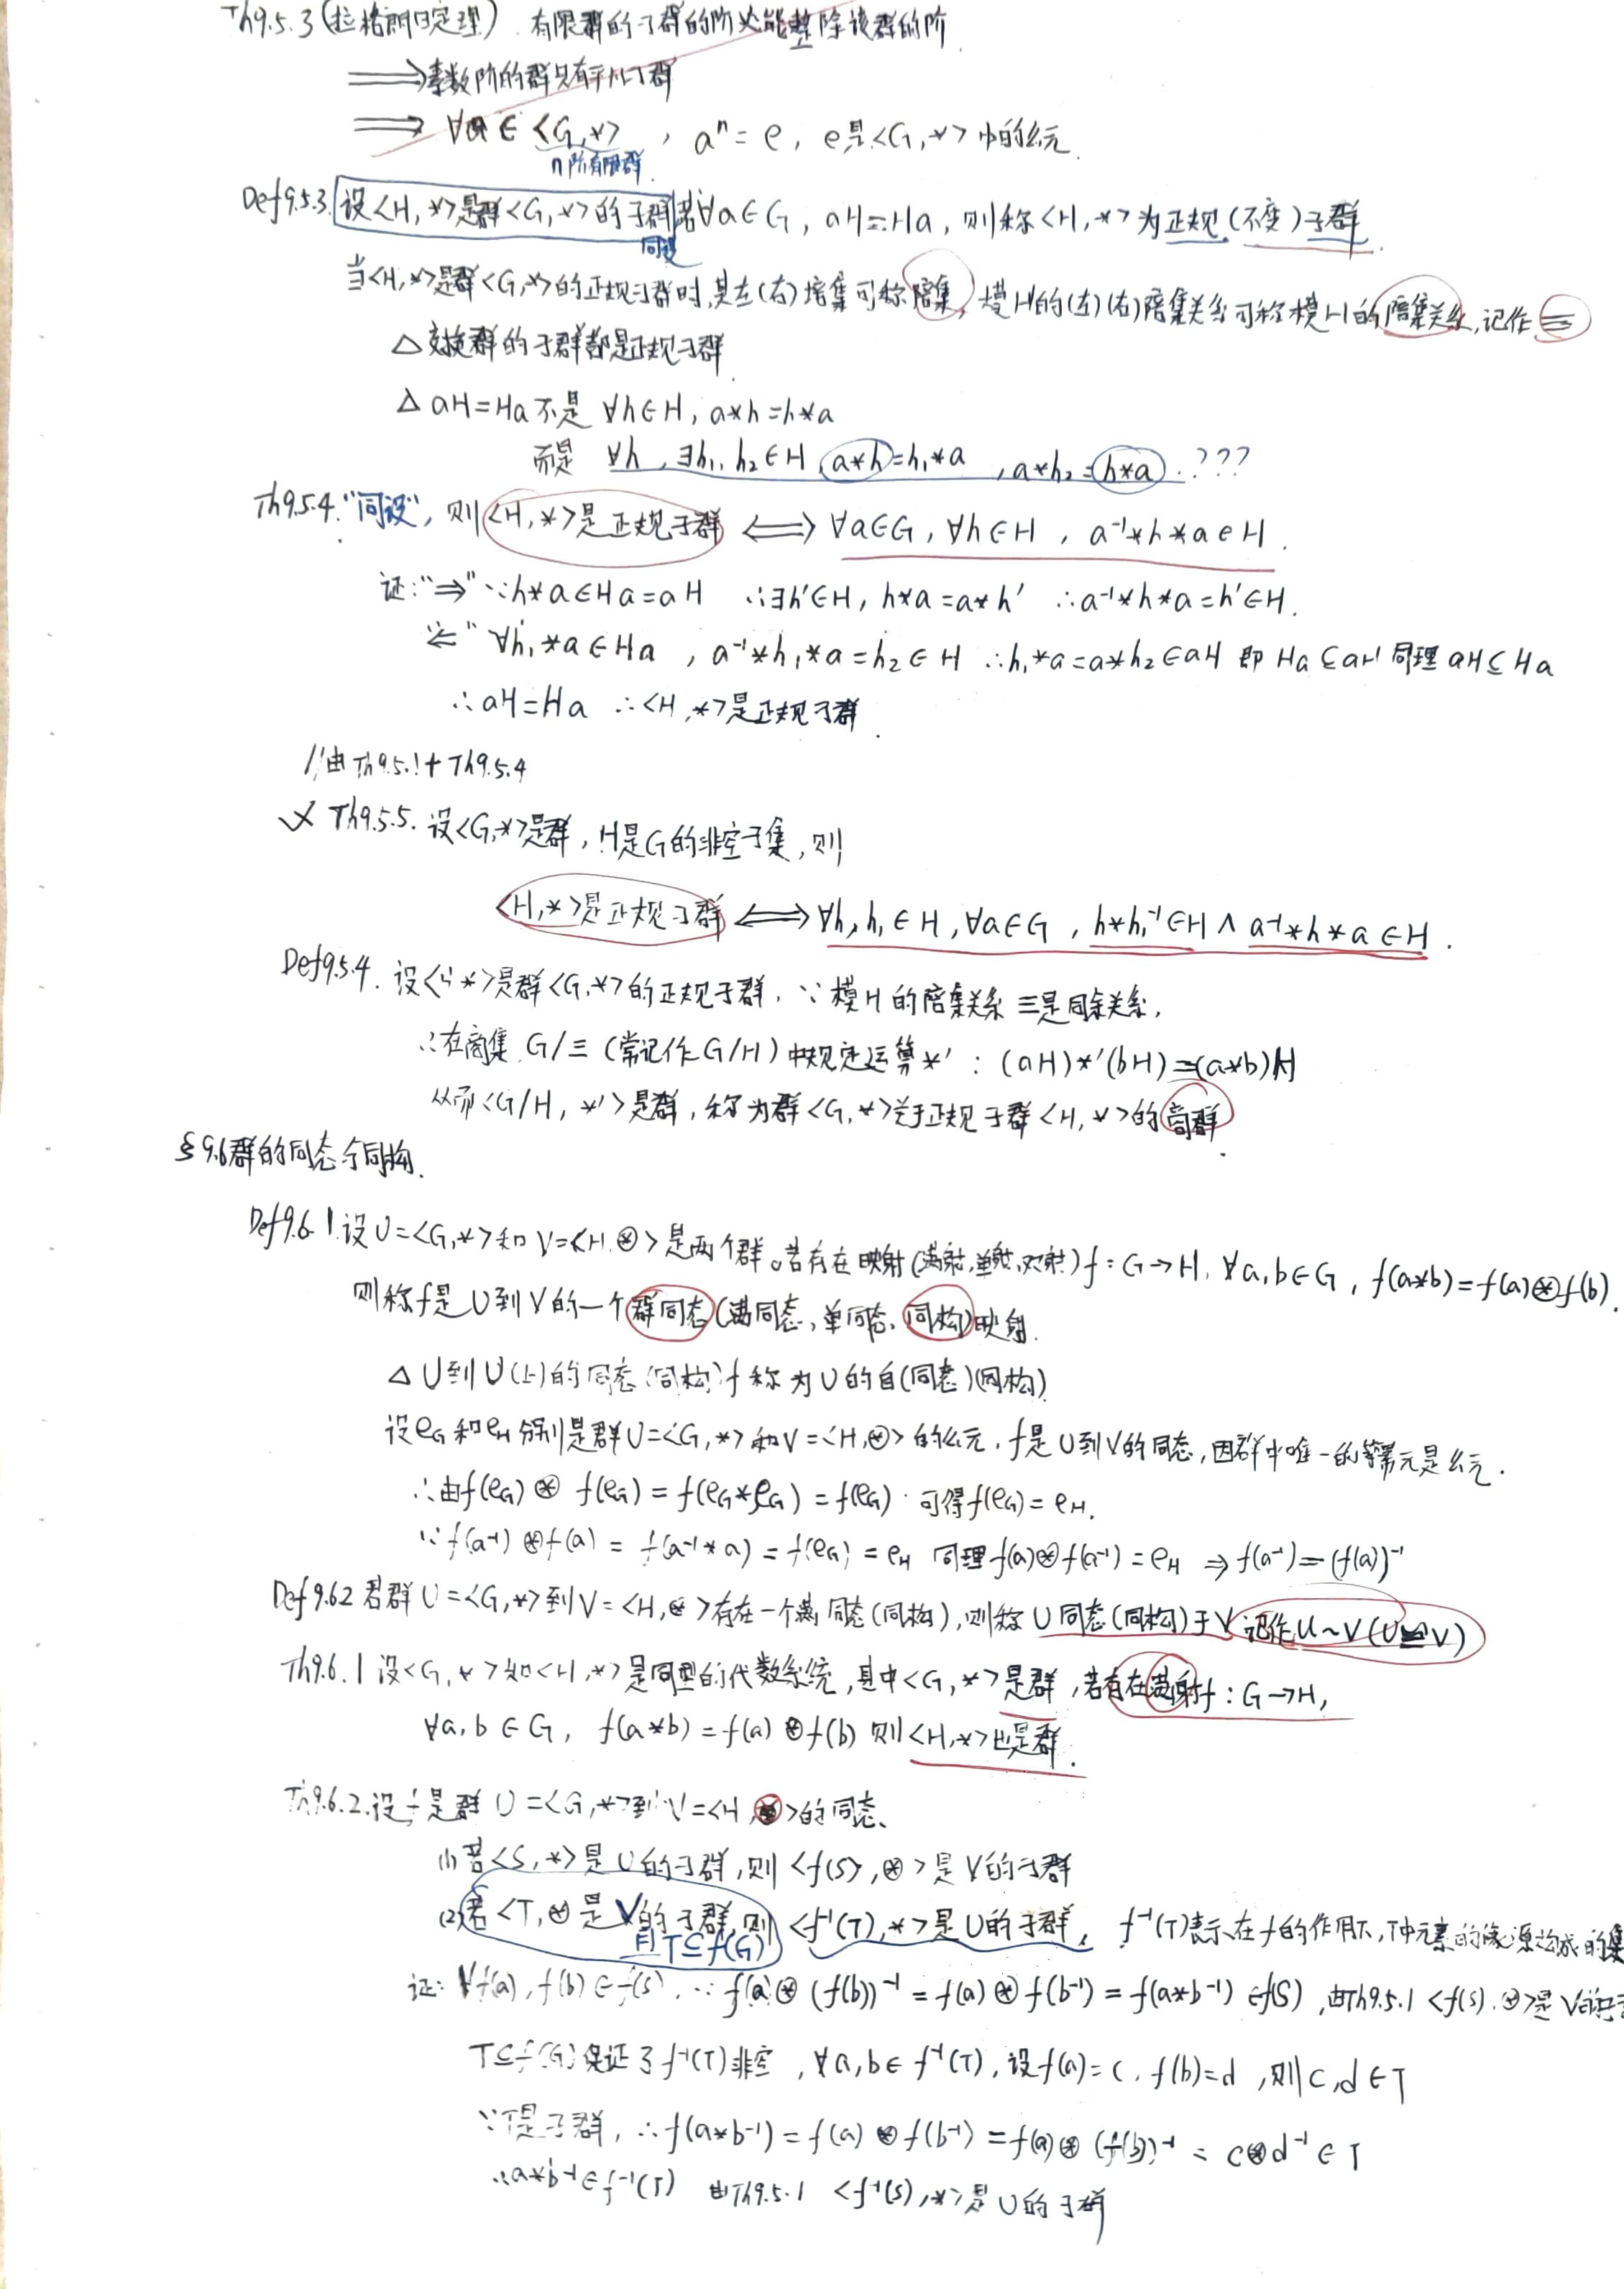 Th9.5.3(拉格朗日定理). 有限群的子群的阶必能整除该群的阶
⟹素数阶的群只有平凡子群
⟹ ∀a∈<G,*>, a^n=e, e是<G,*>中的幺元.
n阶有限群
Def9.5.3.设<H,*>是群<G,*>的子群若∀a∈G, aH=Ha, 则称<H,*>为正规(不变)子群.
同设
当<H,*>是群<G,*>的正规子群时,其左(右)陪集可称陪集,模H的(左)(右)陪集关系可称模H的陪集关系,记作≡
△交换群的子群都是正规子群.
△ aH=Ha不是 ∀h∈H, a*h=h*a
而是 ∀h,∃h₁,h₂∈H, a*h=h₁*a, a*h₂=h*a.???
Th9.5.4."同设", 则<H,*>是正规子群 ⟺ ∀a∈G, ∀h∈H, a⁻¹*h*a∈H.
证:"⇒" ∵h*a∈Ha=aH ∴∃h′∈H, h*a=a*h′ ∴a⁻¹*h*a=h′∈H.
"⇐" ∀h₁*a∈Ha, a⁻¹*h₁*a=h₂∈H ∴h₁*a=a*h₂∈aH 即 Ha⊆aH 同理 aH⊆Ha
∴aH=Ha ∴<H,*>是正规子群.
//由Th9.5.1+Th9.5.4
Th9.5.5. 设<G,*>是群, H是G的非空子集, 则
<H,*>是正规子群 ⟺ ∀h,h₁∈H, ∀a∈G, h*h₁⁻¹∈H ∧ a⁻¹*h*a∈H.
Def9.5.4. 设<H,*>是群<G,*>的正规子群, ∵模H的陪集关系≡是同余关系,
∴在商集 G/≡(常记作G/H)中规定运算*′: (aH)*′(bH)=(a*b)H
从而<G/H, *′>是群, 称为群<G,*>关于正规子群<H,*>的商群.
§9.6群的同态与同构.
Def9.6.1.设U=<G,*>和V=<H,⊛>是两个群。若存在映射(满射,单射,双射)f:G→H, ∀a,b∈G, f(a*b)=f(a)⊛f(b).
则称f是U到V的一个群同态(满同态,单同态,同构)映射.
△U到U(上)的同态(同构)f称为U的自(同态)(同构)
设e_G和e_H分别是群U=<G,*>和V=<H,⊛>的幺元, f是U到V的同态,因群中唯一的等幂元是幺元.
∴由f(e_G)⊛f(e_G)=f(e_G*e_G)=f(e_G). 可得f(e_G)=e_H.
∵f(a⁻¹)⊛f(a)=f(a⁻¹*a)=f(e_G)=e_H 同理f(a)⊛f(a⁻¹)=e_H ⇒f(a⁻¹)=(f(a))⁻¹
Def9.6.2 若群U=<G,*>到V=<H,⊛>存在一个满同态(同构),则称U同态(同构)于V记作U~V(U≌V)
Th9.6.1 设<G,*>和<H,*>是同型的代数系统,其中<G,*>是群,若存在满射f:G→H,
∀a,b∈G, f(a*b)=f(a)⊛f(b) 则<H,*>也是群.
Th9.6.2.设f是群U=<G,*>到V=<H,⊛>的同态、
(1)若<S,*>是U的子群,则<f(S),⊛>是V的子群
(2)若<T,⊛是V的子群,则<f⁻¹(T),*>是U的子群, f⁻¹(T)表示在f的作用下,T中元素的像源构成的集
且T⊆f(G)
证:∀f(a),f(b)∈f(S), ∵f(a)⊛(f(b))⁻¹=f(a)⊛f(b⁻¹)=f(a*b⁻¹)∈f(S),由Th9.5.1<f(S),⊛>是V的子
T⊆f(G)保证了f⁻¹(T)非空, ∀a,b∈f⁻¹(T),设f(a)=c, f(b)=d, 则c,d∈T
∵T是子群, ∴f(a*b⁻¹)=f(a)⊛f(b⁻¹)=f(a)⊛(f(b))⁻¹=c⊛d⁻¹∈T
∴a*b⁻¹∈f⁻¹(T) 由Th9.5.1 <f⁻¹(S),*>是U的子群